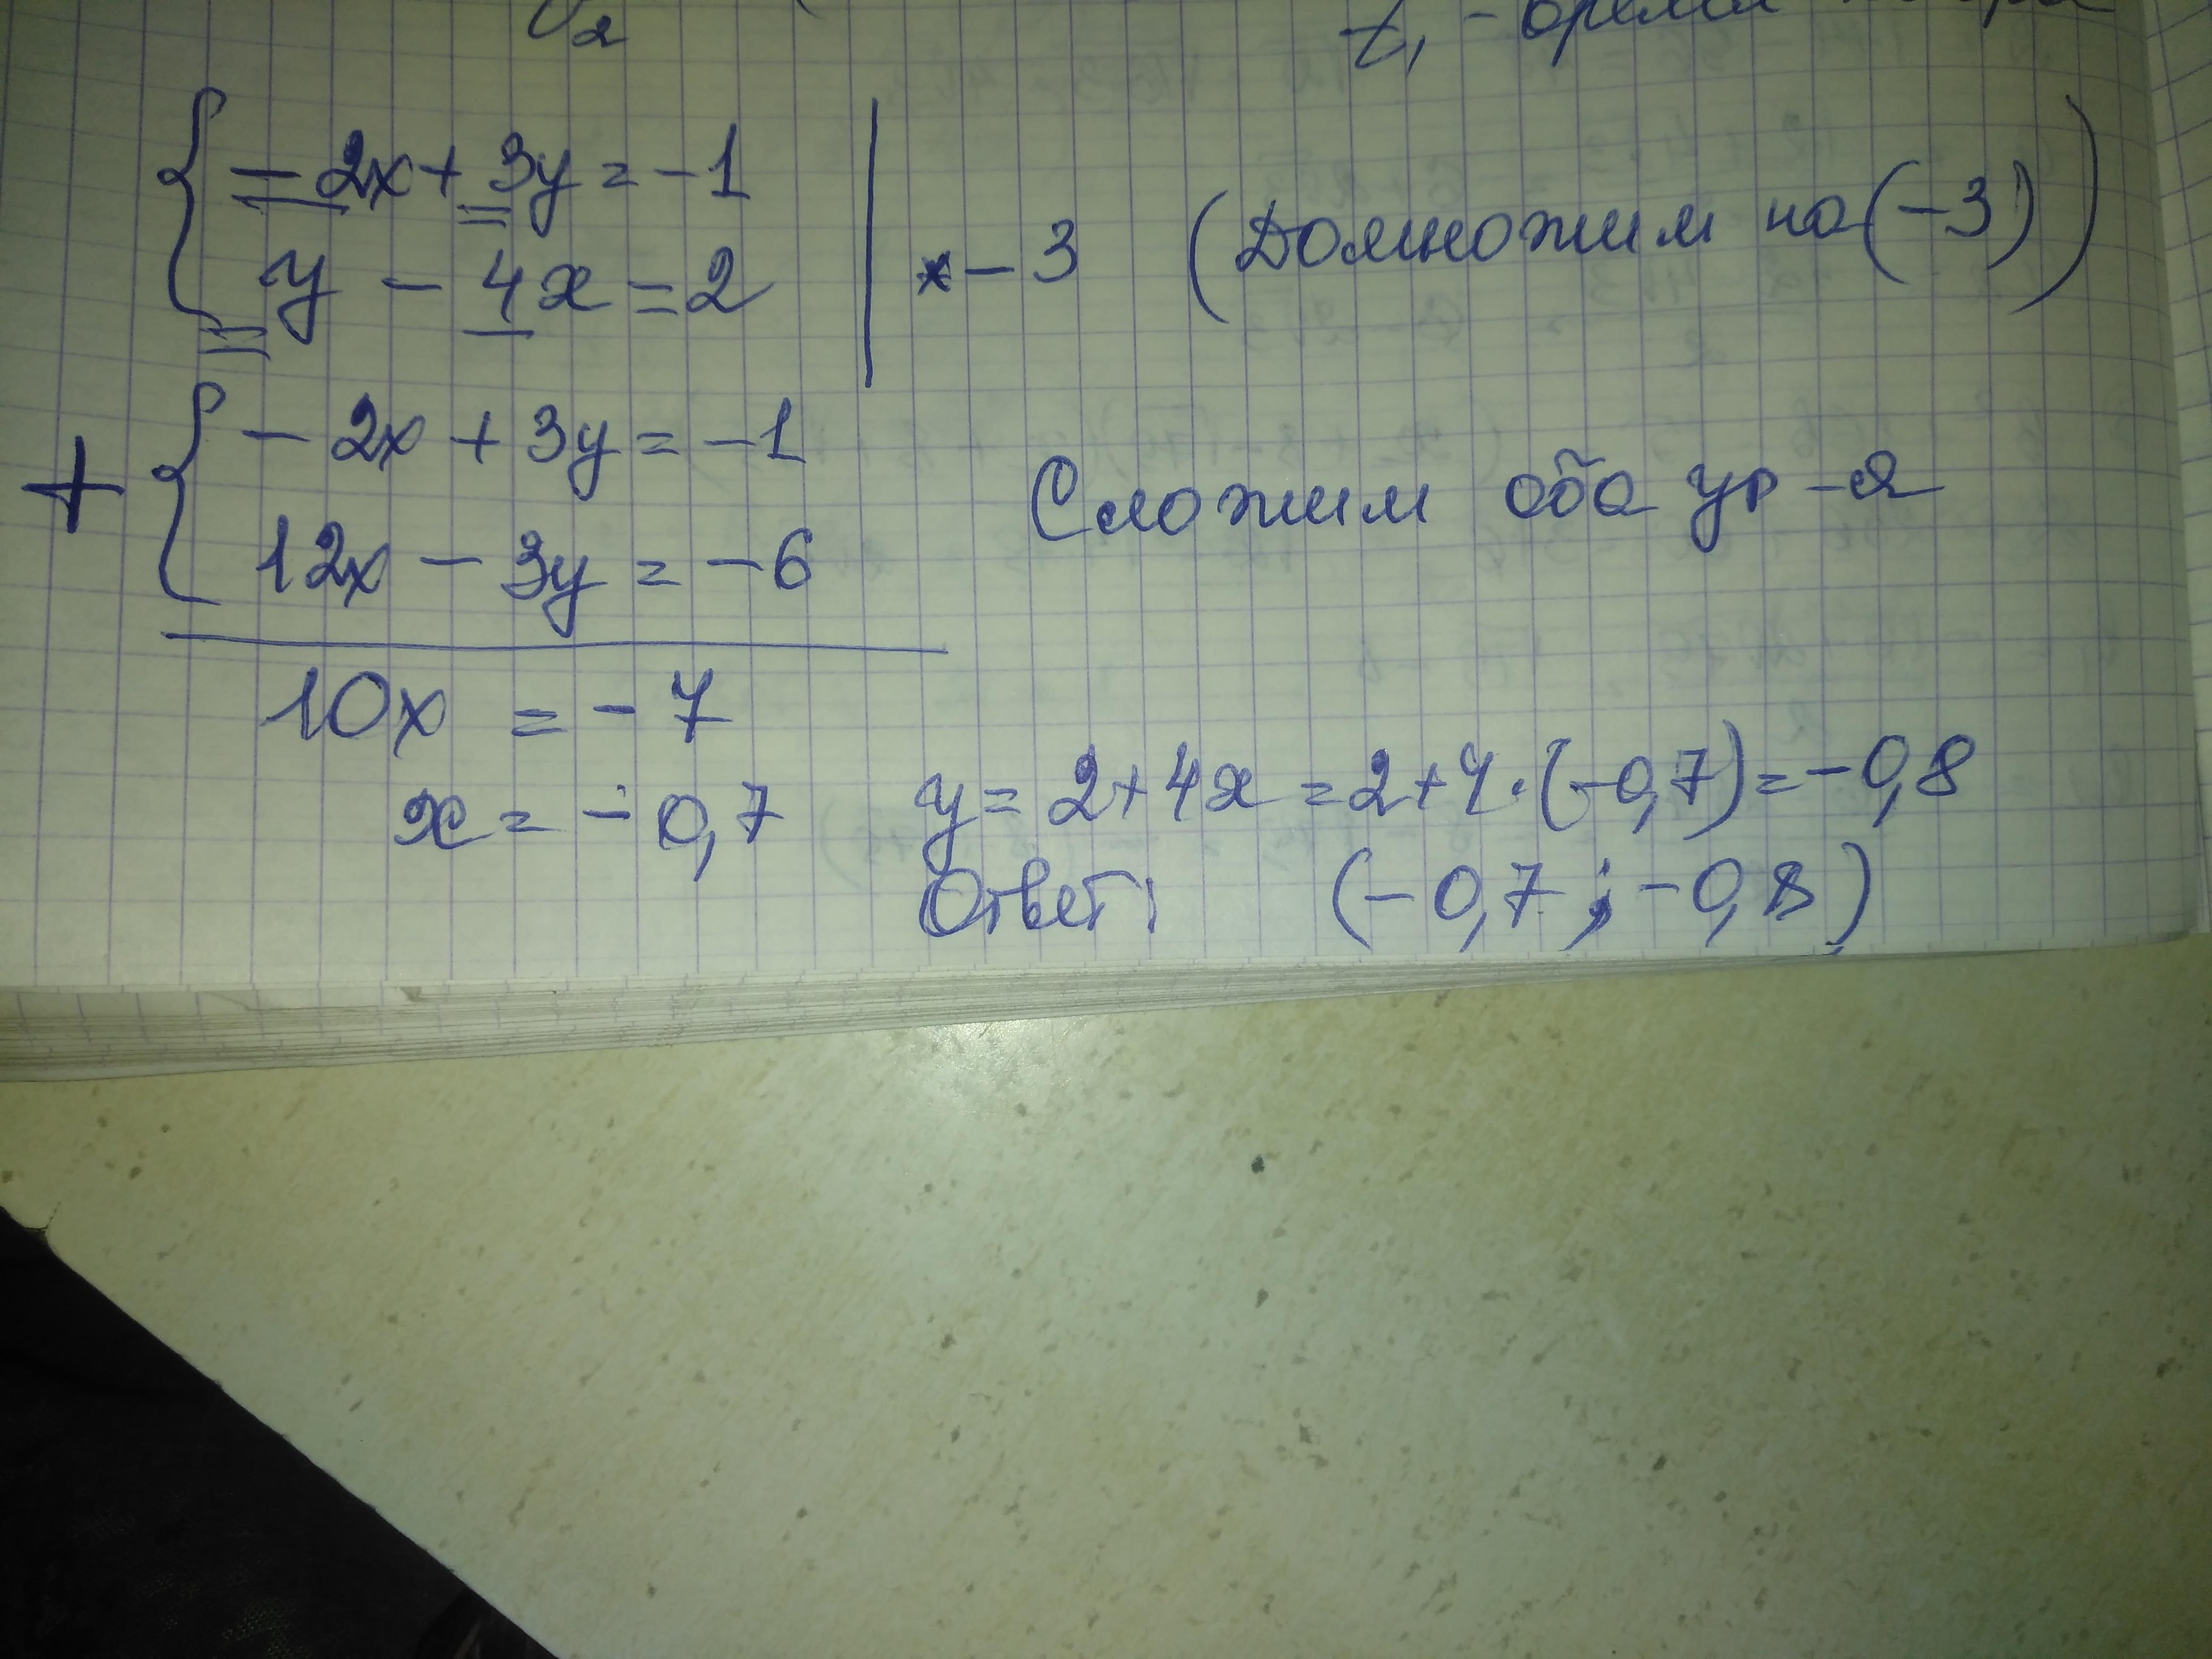 t₁ - время
{ -2x + 3y = -1
y - 4x = 2 | × - 3 (Домножим на (-3))
+ { - 2x + 3y = -1
12x - 3y = -6
Сложим оба ур-я
10x = - 7
x = - 0,7
y = 2 + 4x = 2 + 4 · (-0,7) = -0,8
Ответ: (-0,7 ; -0,8)